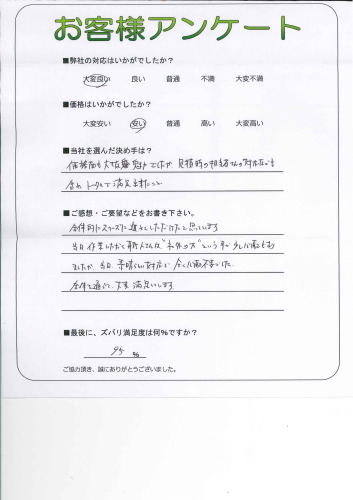 お客様アンケート
■弊社の対応はいかがでしたか?
大変良い 良い 普通 不満 大変不満
■価格はいかがでしたか?
大変安い 安い 普通 高い 大変高い
■当社を選んだ決め手は?
価格面も大切な要望でしたが、見積時の担当さんの対応なども
含め トータルで満足出来たこと
■ご感想・ご要望などをお書き下さい。
全体的にスムーズに進めていただけたと思っています
当日 作業いただく職人さんは
ましたが、当日、素晴らしい対応で 全く心配不要でした
全体を通して、大変 満足しています
■最後に、ズバリ満足度は何%ですか?
95 %
ご協力頂き、誠にありがとうございました。